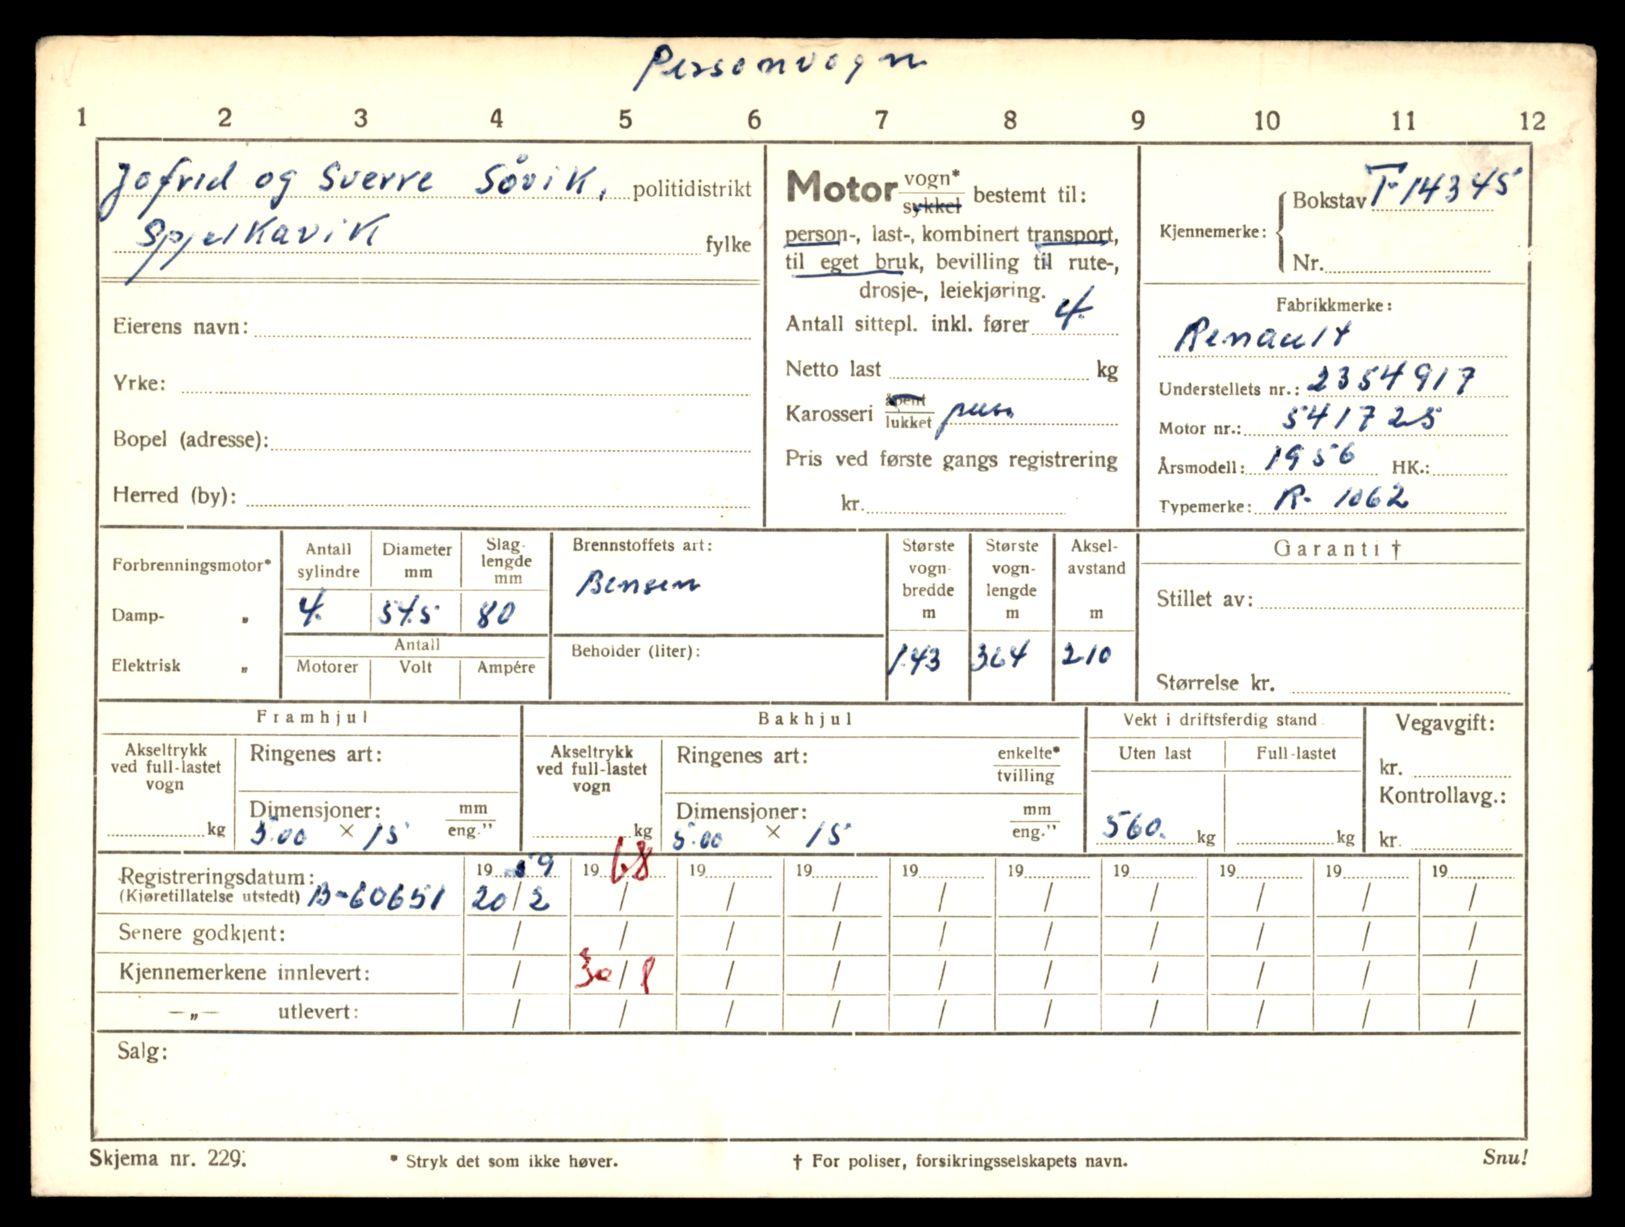 Personvogn
1 2 3 4 5 6 7 8 9 10 11 12
Jofrid og Sverre Søvik, politidistrikt
Spjelkavik fylke
Eierens navn:
Yrke:
Bopel (adresse):
Herred (by):
Motor vogn* sykkel bestemt til:
person-, last-, kombinert transport,
til eget bruk, bevilling til rute-,
drosje-, leiekjøring.
Antall sittepl. inkl. fører 4.
Netto last kg
Karosseri åpent lukket pers.
Pris ved første gangs registrering
kr.
Kjennemerke: Bokstav T-14345
Nr.
Fabrikkmerke:
Renault
Understellets nr.: 2354917
Motor nr.: 541725
Årsmodell: 1956 HK.:
Typemerke: R-1062
Forbrenningsmotor*
Damp- „
Elektrisk „
Antall sylindre Diameter mm Slag-lengde mm
4. 54.5 80
Antall
Motorer Volt Ampére
Brennstoffets art:
Bensin
Beholder (liter):
Største vogn-bredde m Største vogn-lengde m Aksel-avstand m
1.43 364 210
Garanti †
Stillet av:
Størrelse kr.
Framhjul
Akseltrykk ved full-lastet vogn kg
Ringenes art:
Dimensjoner: mm eng."
5.00 × 15
Bakhjul
Akseltrykk ved full-lastet vogn kg
Ringenes art: enkelte* tvilling
Dimensjoner: mm eng."
5.00 × 15
Vekt i driftsferdig stand
Uten last Full-lastet
560. kg kg
Vegavgift:
kr.
Kontrollavg.:
kr.
19 59 19 68 19 19 19 19 19 19 19 19
Registreringsdatum:
(Kjøretillatelse utstedt) B-60651 20/2 / / / / / / / / /
Senere godkjent: / / / / / / / / / /
Kjennemerkene innlevert: / 30/8 / / / / / / / /
—„— utlevert: / / / / / / / / / /
Salg:
Skjema nr. 229. * Stryk det som ikke høver. † For poliser, forsikringsselskapets navn. Snu!